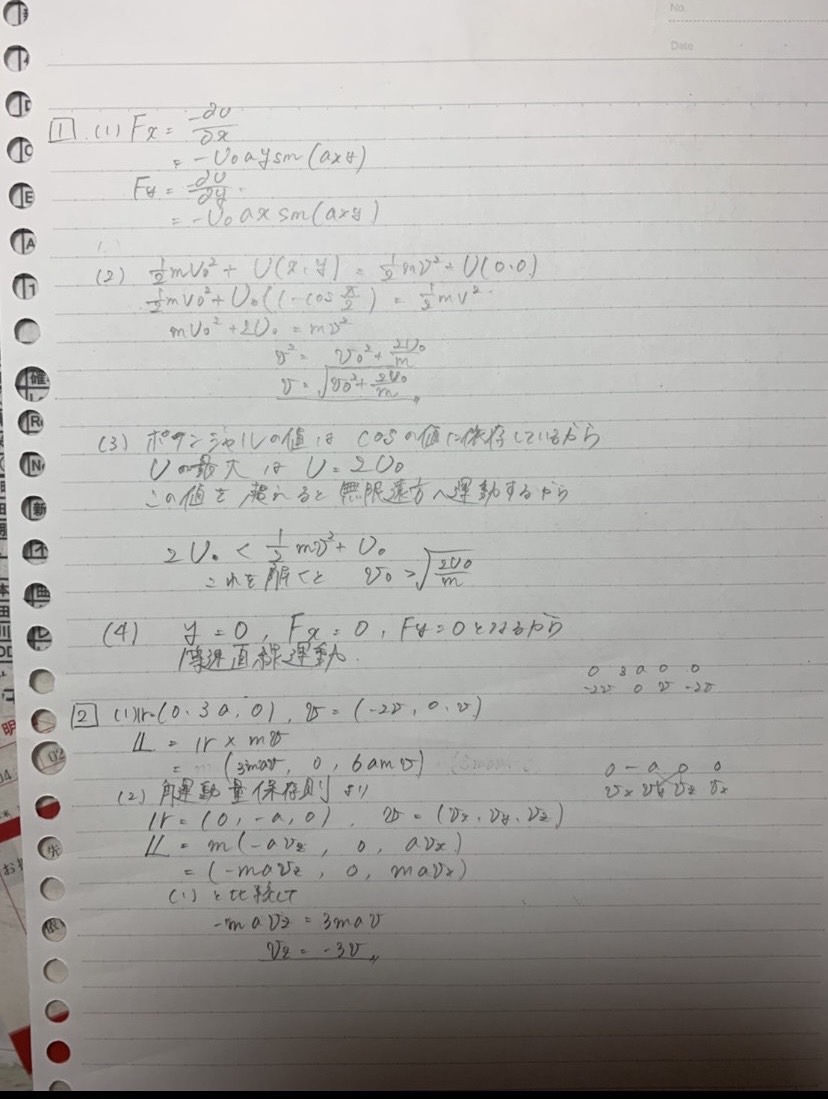 No.
Date
1 (1) Fx = -∂U/∂x
= -U₀ a y sin(axy)
Fy = -∂U/∂y
= -U₀ ax sin(axy)
(2) 1/2 mv₀² + U(x,y) = 1/2 mv² + U(0.0)
1/2 mv₀² + U₀(1-cos π/2) = 1/2 mv²
mv₀² + 2U₀ = mv²
v² = v₀² + 2U₀/m
v = √(v₀² + 2U₀/m)
(3) ポテンシャルの値は cosの値に依存しているから
Uの最大は U = 2U₀
この値を超れると無限遠方へ運動するから
2U₀ < 1/2 mv² + U₀
これを解くと v₀ > √(2U₀/m)
(4) y = 0, Fx = 0, Fy = 0 となるから
等速直線運動.
0 3a 0 0
-2v 0 v -2v
2 (1) r = (0, 3a, 0), v = (-2v, 0, v)
L = r × mv
= (3mav, 0, 6amv)
(2) 角運動量保存則より
0 -a 0 0
vx vy vz vx
r = (0, -a, 0), v = (vx, vy, vz)
L = m(-avz, 0, avx)
= (-mavz, 0, mavx)
(1)と比較して
-mavz = 3mav
vz = -3v